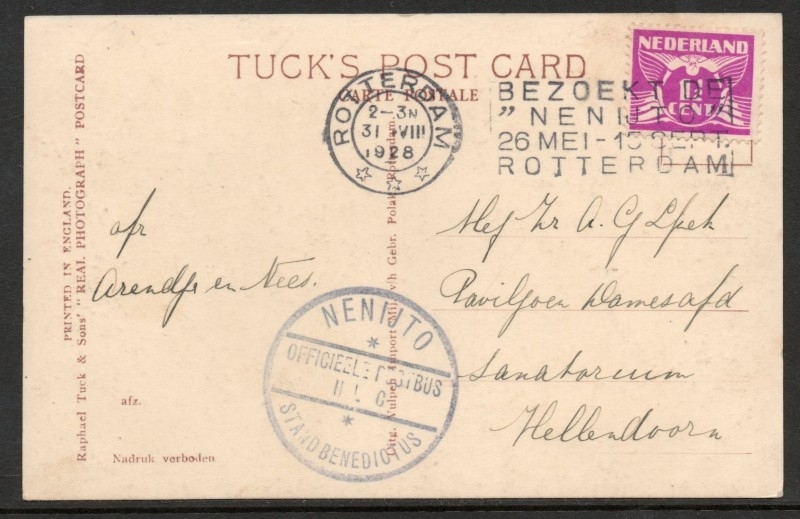 TUCK'S POST CARD
CARTE POSTALE
NEDERLAND
1½
CENT
ROTTERDAM
2-3N
31 VIII
1928
BEZOEKT DE
"NENIJTO"
26 MEI-15 SEPT.
ROTTERDAM
PRINTED IN ENGLAND.
Raphael Tuck & Sons' "REAL PHOTOGRAPH" POSTCARD
Uitg. Vulpen Import Mij. v/h Gebr. Polak, Rotterdam.
afz.
Nadruk verboden
afz
en Nees.
NENIJTO
OFFICIEELE POSTBUS
STAND BENEDICTUS
Mej Zr A. G
Paviljoen Damesafd
Sanatorium
Hellendoorn